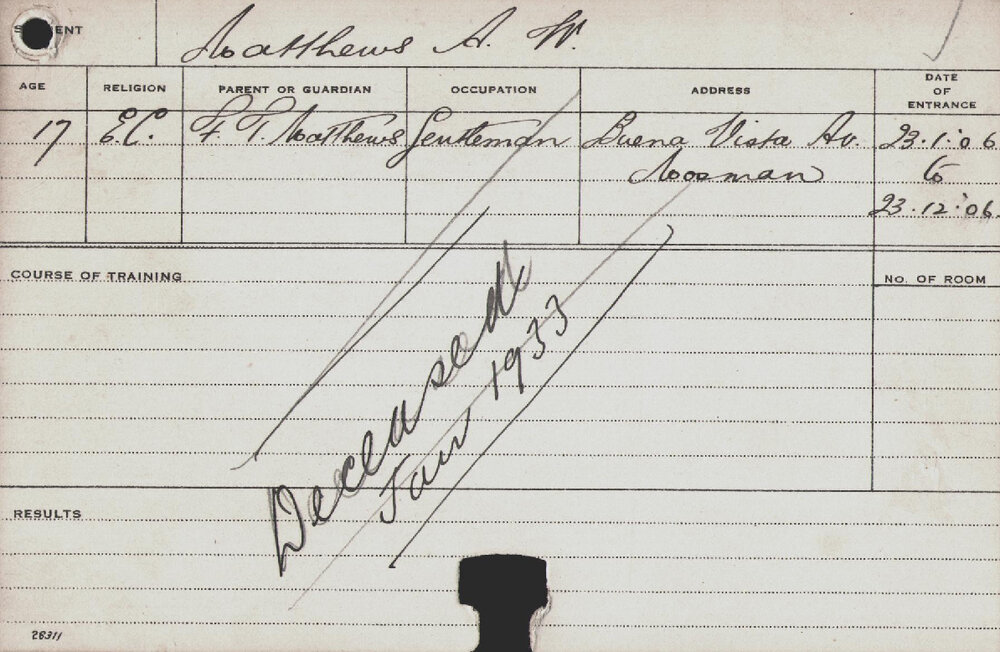 STUDENT Matthews A. W.
AGE RELIGION PARENT OR GUARDIAN OCCUPATION ADDRESS DATE OF ENTRANCE
17 E.C. F. T. Matthews Gentleman Buena Vista Av. 23.1.06.
Mosman to
23.12.06.
COURSE OF TRAINING
NO. OF ROOM
Deceased
Jan 1933
RESULTS
28311